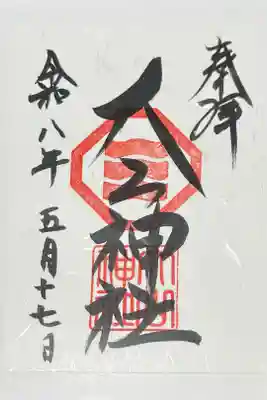 奉拝
大山神社
令和八年 五月十七日